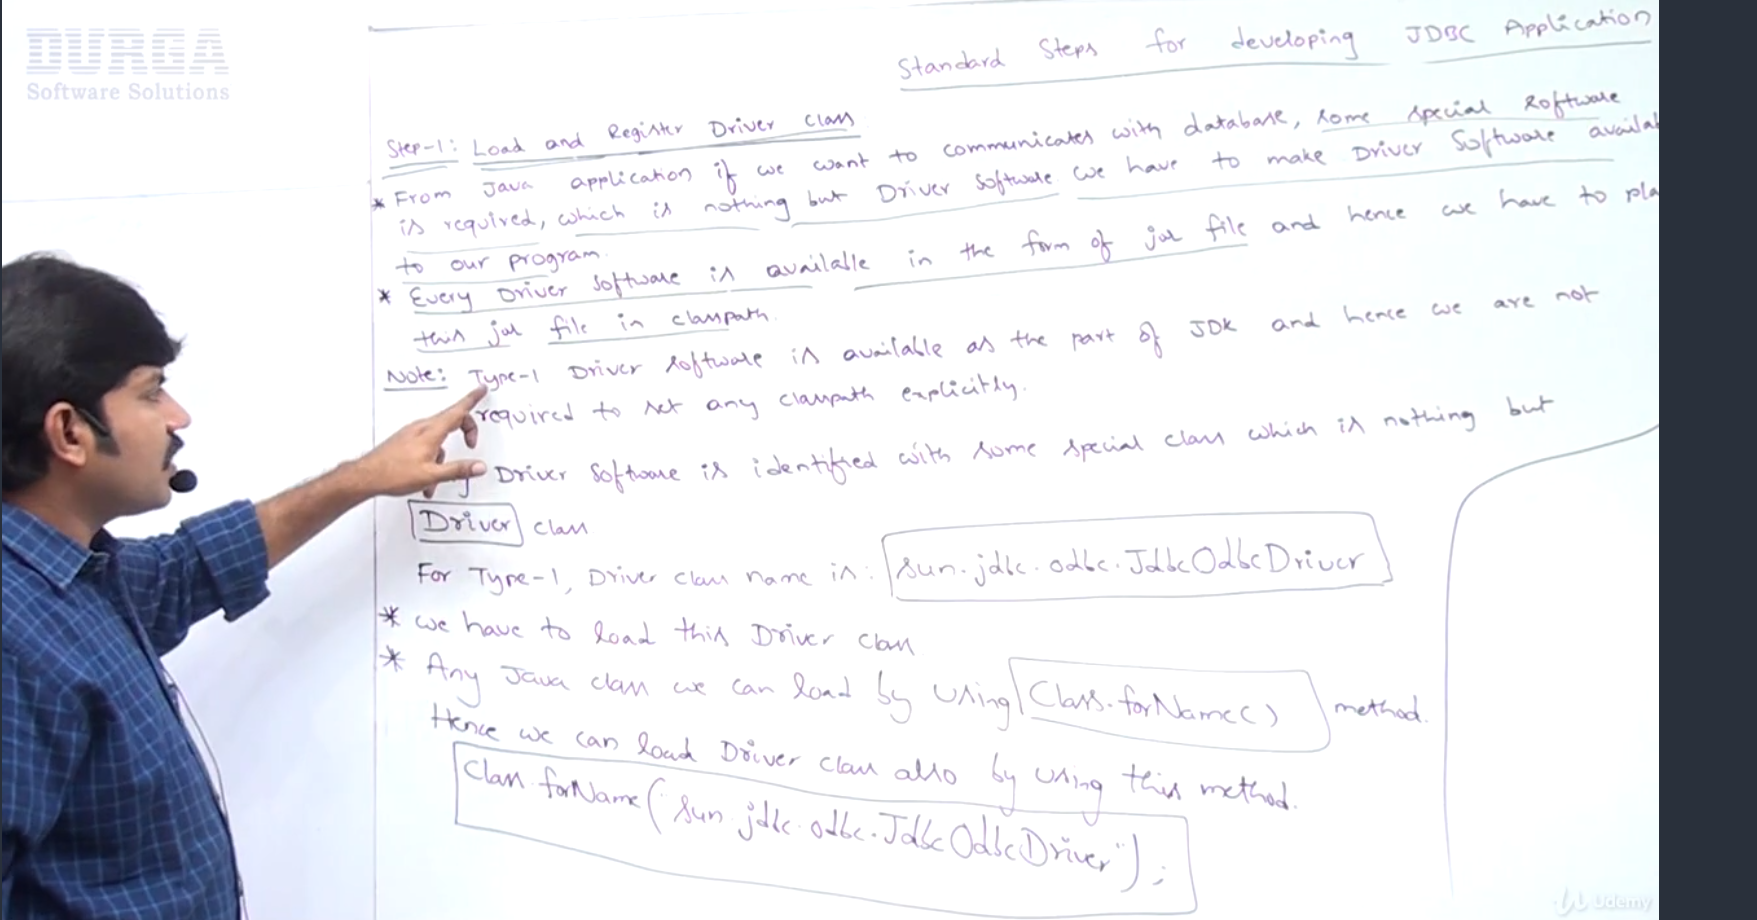 DURGA
Software Solutions
Standard Steps for developing JDBC Application
Step-1: Load and Register Driver class
* From Java application if we want to communicates with database, some special software
is required, which is nothing but Driver Software we have to make Driver Software availab
to our program.
* Every Driver software is available in the form of jar file and hence we have to pla
this jar file in classpath.
Note: Type-1 Driver software is available as the part of JDK and hence we are not
required to set any classpath explicitly.
Driver Software is identified with some special class which is nothing but
Driver class
For Type-1, Driver class name is: sun.jdbc.odbc.JdbcOdbcDriver
* we have to load this Driver class
* Any Java class we can load by using Class.forName() method.
Hence we can load Driver class also by using this method.
Class.forName("sun.jdbc.odbc.JdbcOdbcDriver");
Udemy